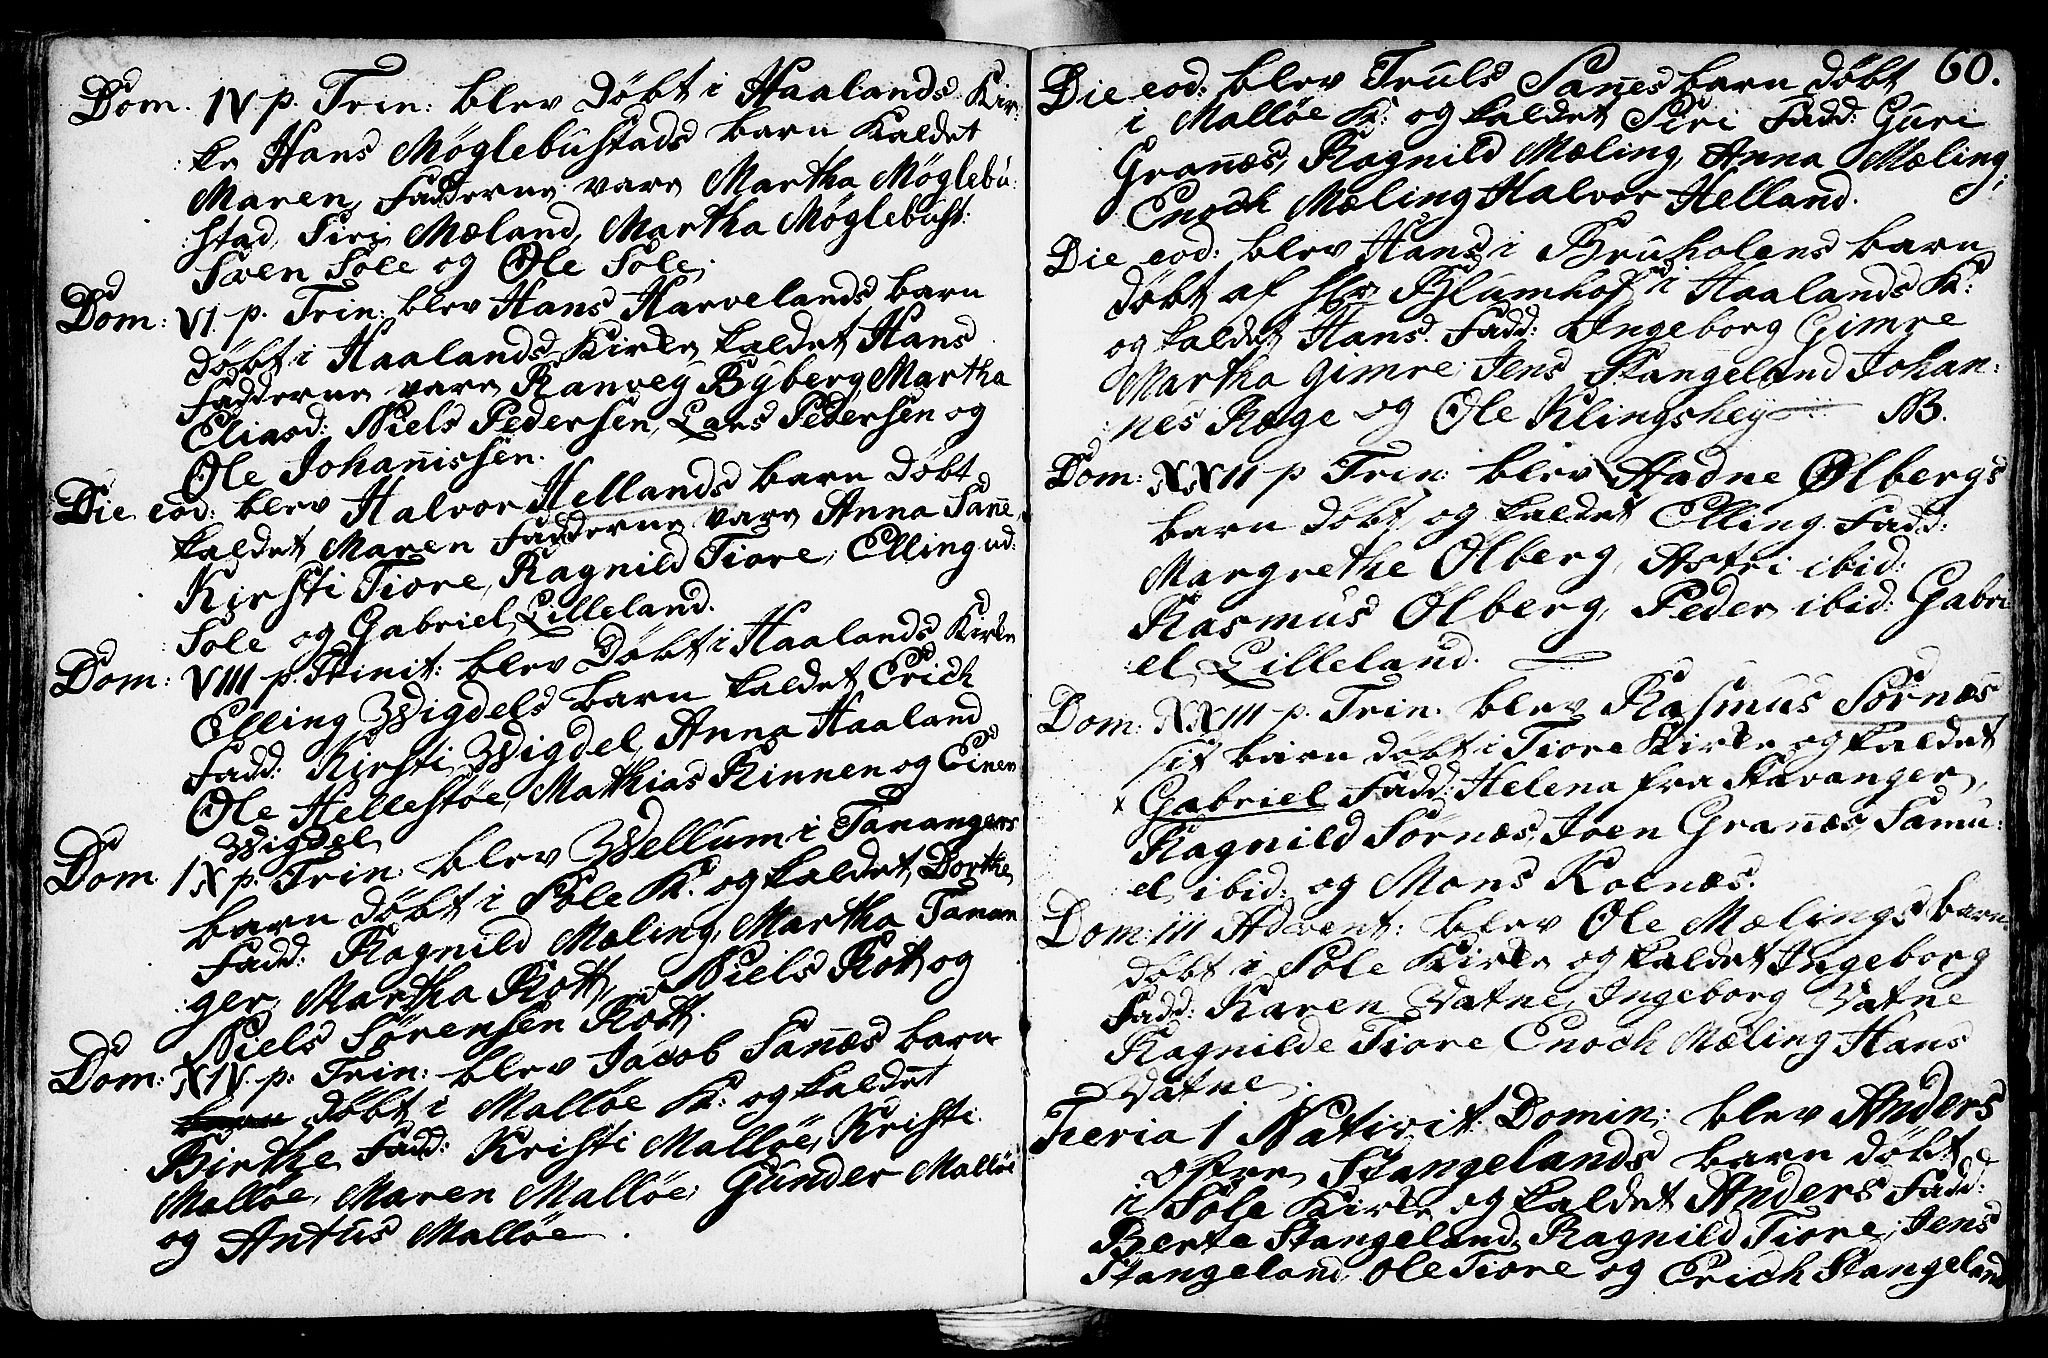 Dom. IV p. Trin: blev døbt i Haalands Kir:
ke Hans Møglebustads barn kaldet
Maren, Fadderne vare Martha Møglebu:
stad, Siri Mæland, Martha Møglebust:
Sven Sole og Ole Sole.
Dom: VI. p. Trin: blev Hans Harvelands barn
døbt i Haalands Kirke kaldet Hans
Fadderne vare Ranveg Byberg, Martha
Eliasd: Niels Pedersen, Lars Pedersen og
Ole Johanissen.
Die eod: blev Halvor Hellands barn døbt
kaldet Maren Fadderne vare Anna Sane,
Kirsti Tiore, Ragnild Tiore, Elling ud:
Sole og Gabriel Lilleland.
Dom: VIII p. Trinit: blev Døbt i Haalands Kirke
Elling Wigdels barn kaldet Erich
Fadd: Kirsti Wigdel, Anna Haaland
Ole Hellestøe, Mathias Rinnen og Einer
Wigdel
Dom. IX p. Trin: blev Wellum i Tanangers
barn døbt i Sole K: og kaldet Dorthe
Fadd: Ragnild Mæling, Martha Tanan
ger, Martha Rott, Niels Rott og
Niels Sørensen Rott.
Dom: XIV. p: Trin: blev Jacob Sanes barn
barn døbt i Malløe K: og kaldet
Birthe Fadd: Kristi Malløe, Kristi
Malløe, Maren Malløe, Gunder Malløe
og Antus Malløe.
60.
Die eod: blev Truls Sanes barn døbt
i Malløe K: og kaldet Siri Fadd: Guri
Granæs, Ragnild Mæling, Anna Mæling,
Enoch Mæling Halvor Helland.
Die eod: blev Hans i Bruholens barn
døbt af Hr Blumhof i Haalands K:
og kaldet Hans. Fadd: Ingeborg Gimre
Martha Gimre, Jens Stangeland Johan:
nes Ræge og Ole Klingshey NB.
Dom: XXII p Trin: blev Aadne Ølbergs
barn døbt og kaldet Elling. Fadd:
Margrethe Ølberg, Astri ibid:
Rasmus Ølberg, Peder ibid: Gabri
el Lilleland.
Dom: XXIII p. Trin: blev Rasmus Sørnæs
sit barn døbt i Tiore Kirke og kaldet
x Gabriel Fadd: Helena fra Stavanger,
Ragnild Sørnæs, Joen Granæs, Samu:
el ibid: og Mons Kolnæs.
Dom: III Advent: blev Ole Mælings barn
døbt i Sole Kirke og kaldet Ingeborg
Fadd: Karen Vatne, Ingeborg Vatne
Ragnilde Tiore, Enoch Mæling Hans
Vatne.
Feria 1 Nativit: Domin: blev Anders
øfre Stangelands barn døbt
i Sole Kirke og kaldet Anders Fadd:
Berte Stangeland, Ragnild Tiore, Jens
Stangeland, Ole Tiore og Erich Stangeland